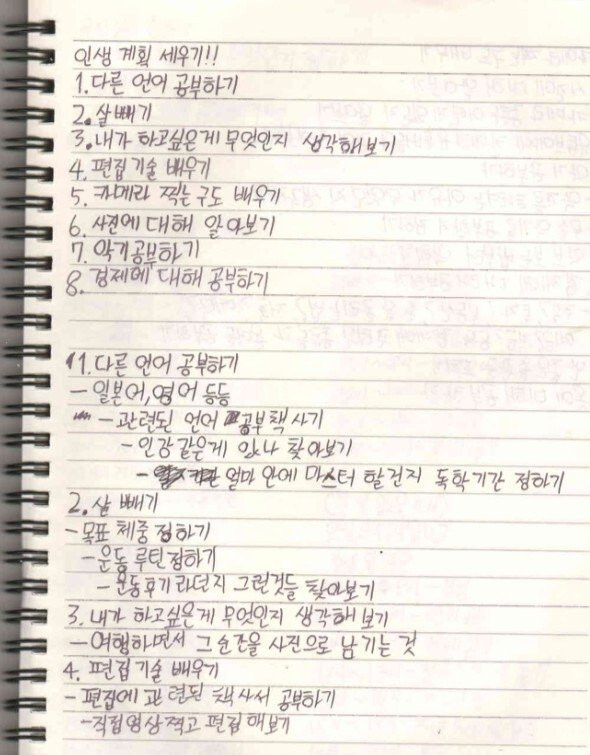 인생 계획 세우기!!
1. 다른 언어 공부하기
2. 살 빼기
3. 내가 하고싶은게 무엇인지 생각해보기
4. 편집 기술 배우기
5. 카메라 찍는 구도 배우기
6. 사진에 대해 알아보기
7. 악기 공부하기
8. 경제에 대해 공부하기
1. 다른 언어 공부하기
- 일본어, 영어 등등
- 관련된 언어 공부 책 사기
- 인강 같은게 있나 찾아보기
- 얼마 안에 마스터 할건지 독학기간 정하기
2. 살 빼기
- 목표 체중 정하기
- 운동 루틴 정하기
- 운동후기 라던지 그런것들 찾아보기
3. 내가 하고싶은게 무엇인지 생각해 보기
- 여행하면서 그 순간을 사진으로 남기는 것
4. 편집 기술 배우기
- 편집에 관련된 책 사서 공부하기
- 직접 영상 찍고 편집 해보기